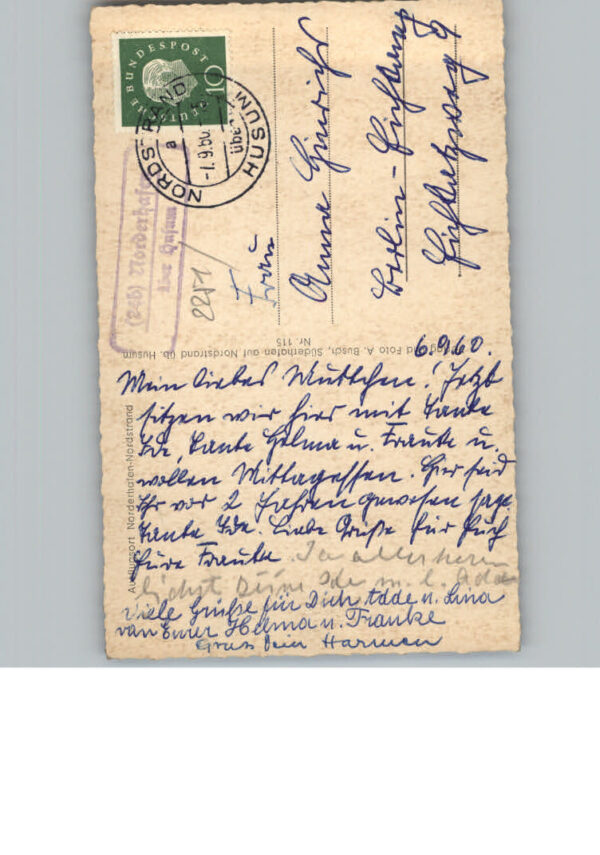 DEUTSCHE BUNDESPOST
10
NORDSTRAND
über HUSUM
a
-7.9.60.
(24b) Norderhafen
über Husum
2251
Frau
Anna Hinrichs
Berlin-Lichtenrade
und Foto A. Busch, Süderhafen auf Nordstrand üb. Husum
Nr. 115
Ausflugsort Norderhafen-Nordstrand
6.9.60.
Mein liebes Muttchen! Jetzt
sitzen wir hier mit Tante
Ide, Tante Helma u. Frauke u.
wollen Mittagessen. Hier seid
Ihr vor 2 Jahren gewesen sagt
Tante Ide. Liebe Grüße für Euch
Eure Frauke
Viele Grüße für Dich, Adde u. Lina
von Eurer Helma u. Frauke
Gruss dein Harmen